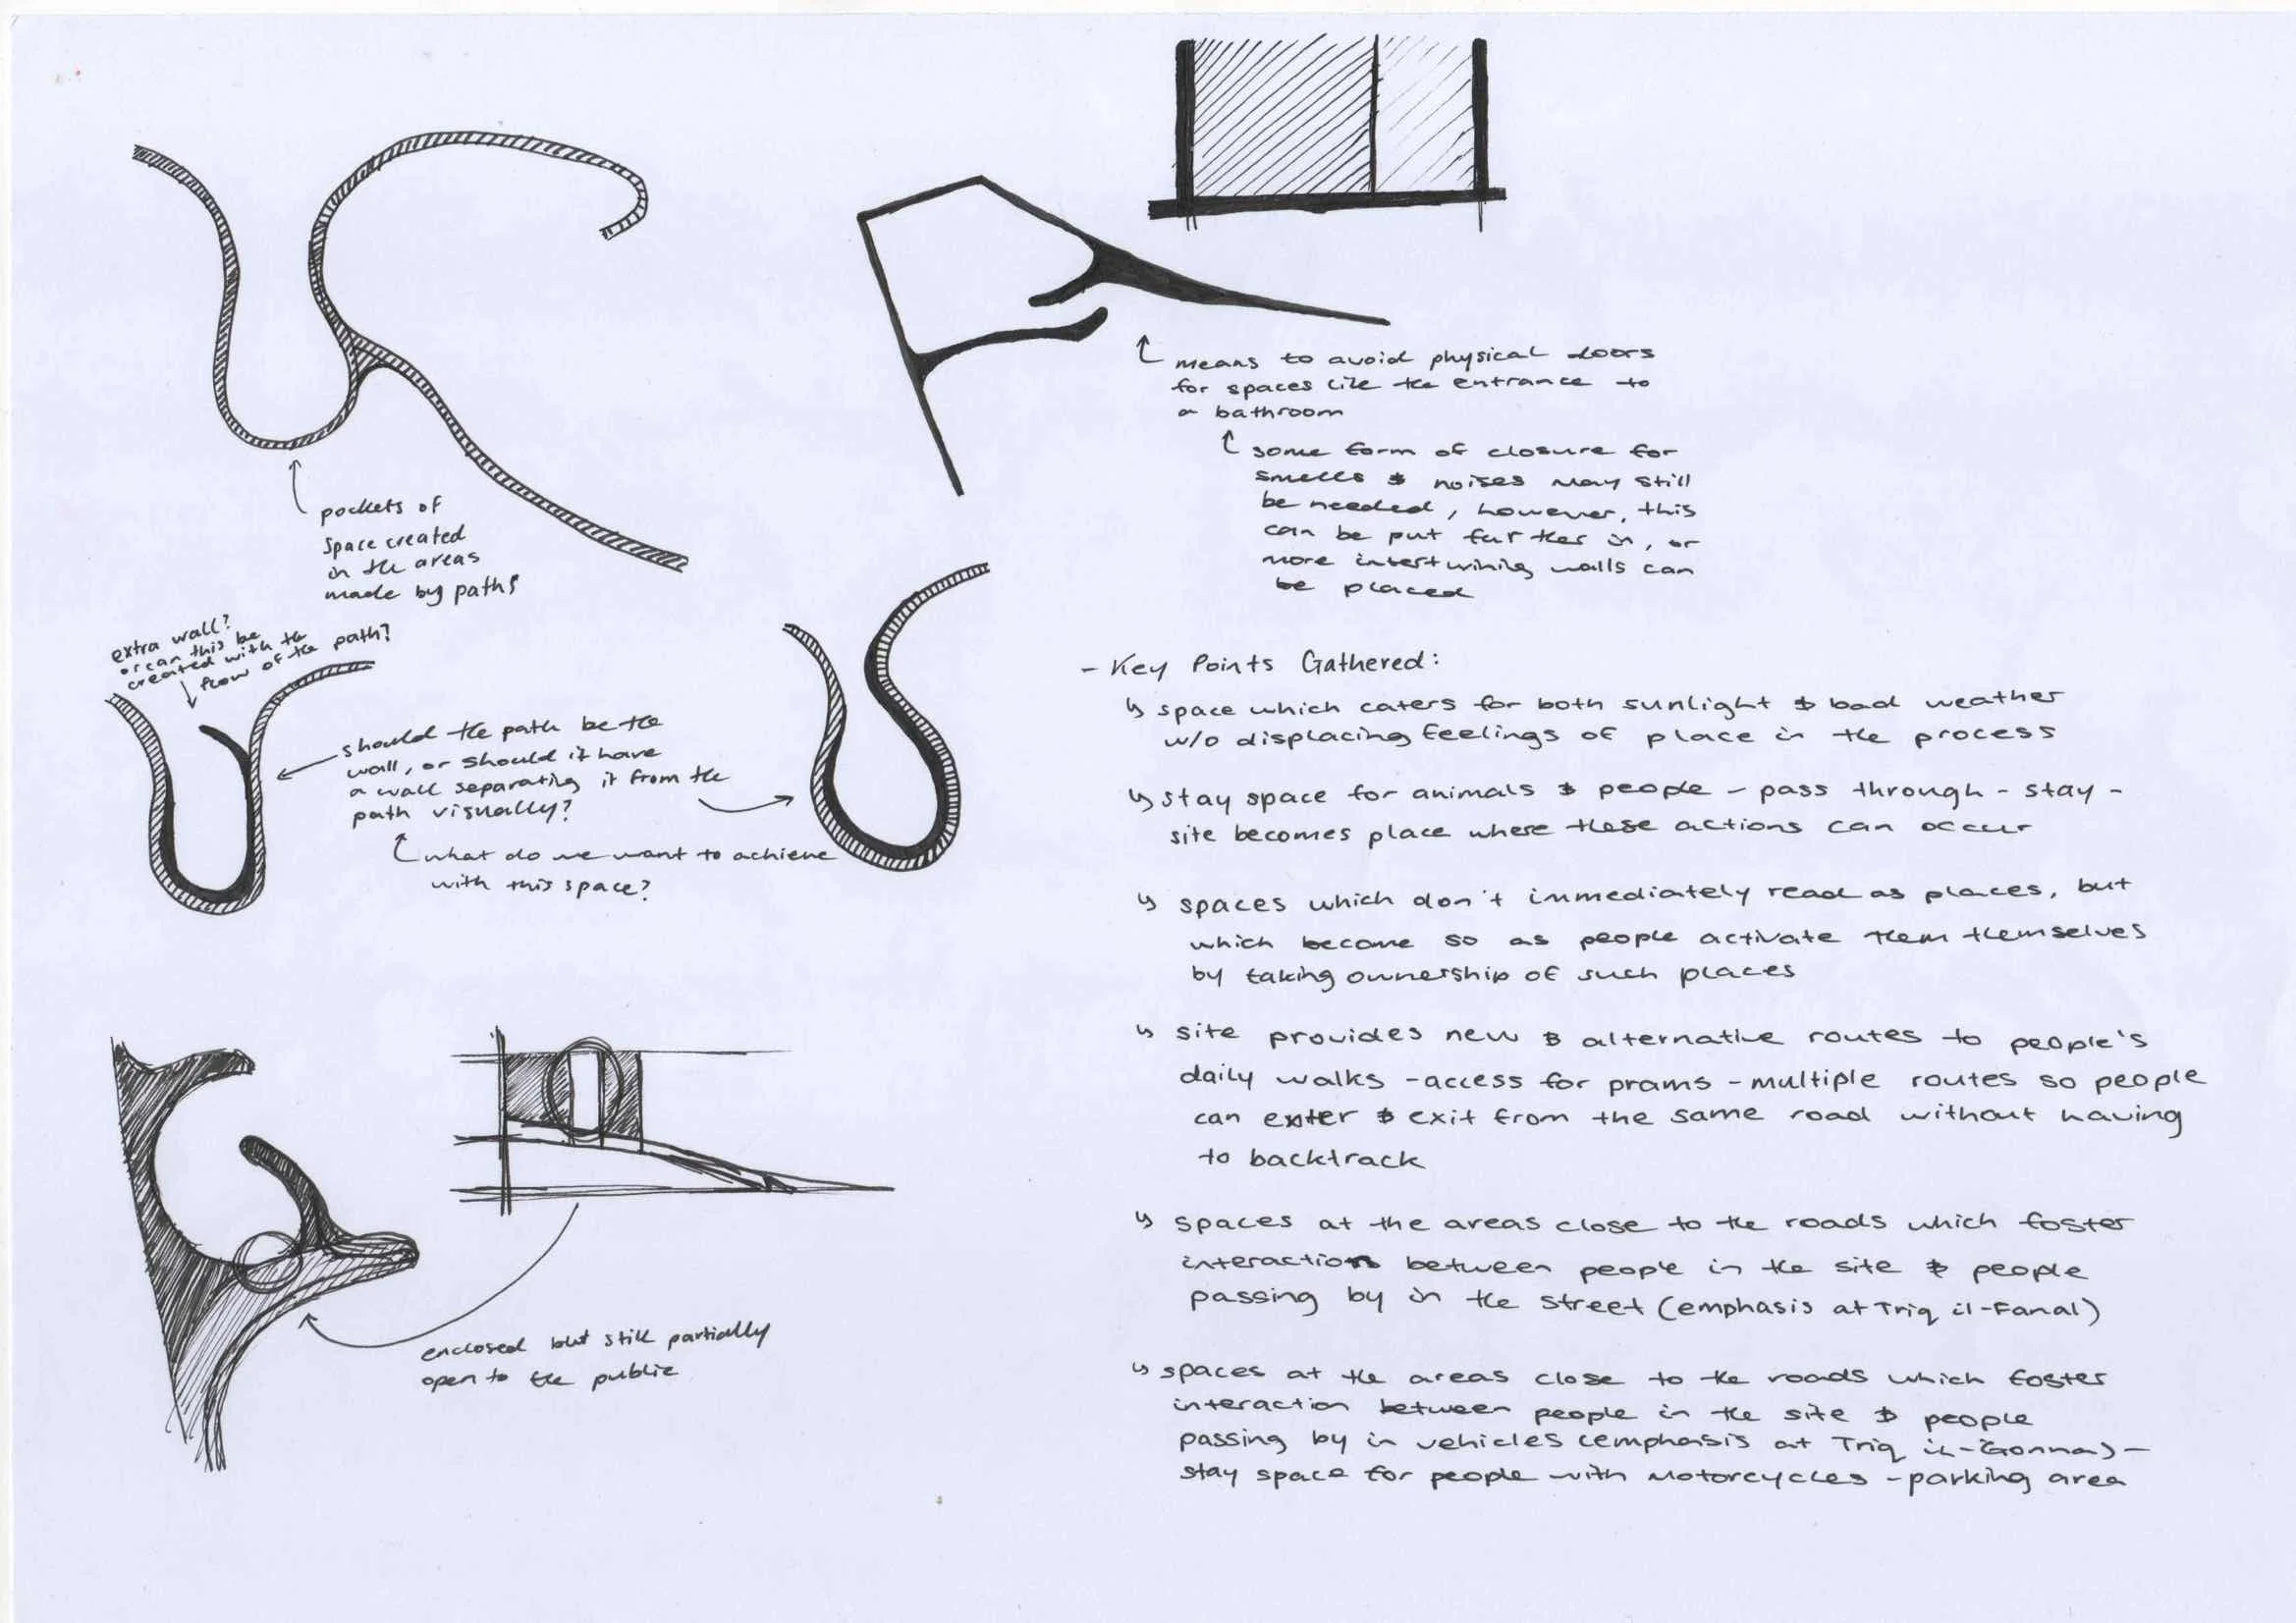 pockets of
space created
in the areas
made by paths
extra wall?
or can this be
created with the
flow of the path?
should the path be the
wall, or should it have
a wall separating it from the
path visually?
what do we want to achieve
with this space?
enclosed but still partially
open to the public
means to avoid physical doors
for spaces like the entrance to
a bathroom
some form of closure for
smells & noises may still
be needed, however, this
can be put further in, or
more intertwining walls can
be placed
- Key Points Gathered:
↳ space which caters for both sunlight & bad weather
w/o displacing feelings of place in the process
↳ stay space for animals & people - pass through - stay -
site becomes place where these actions can occur
↳ spaces which don't immediately read as places, but
which become so as people activate them themselves
by taking ownership of such places
↳ site provides new & alternative routes to people's
daily walks - access for prams - multiple routes so people
can enter & exit from the same road without having
to backtrack
↳ spaces at the areas close to the roads which foster
interaction between people in the site & people
passing by in the street (emphasis at Triq il-Fanal)
↳ spaces at the areas close to the roads which foster
interaction between people in the site & people
passing by in vehicles (emphasis at Triq il-Ġonna) -
stay space for people with motorcycles - parking area